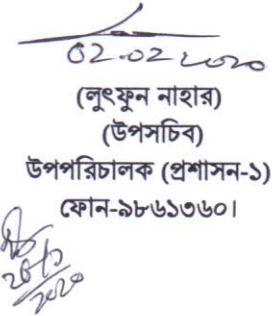 02.02.2020
(লুৎফুন নাহার)
(উপসচিব)
উপপরিচালক (প্রশাসন-১)
ফোন-৯৮৬১৩৬০।
2020